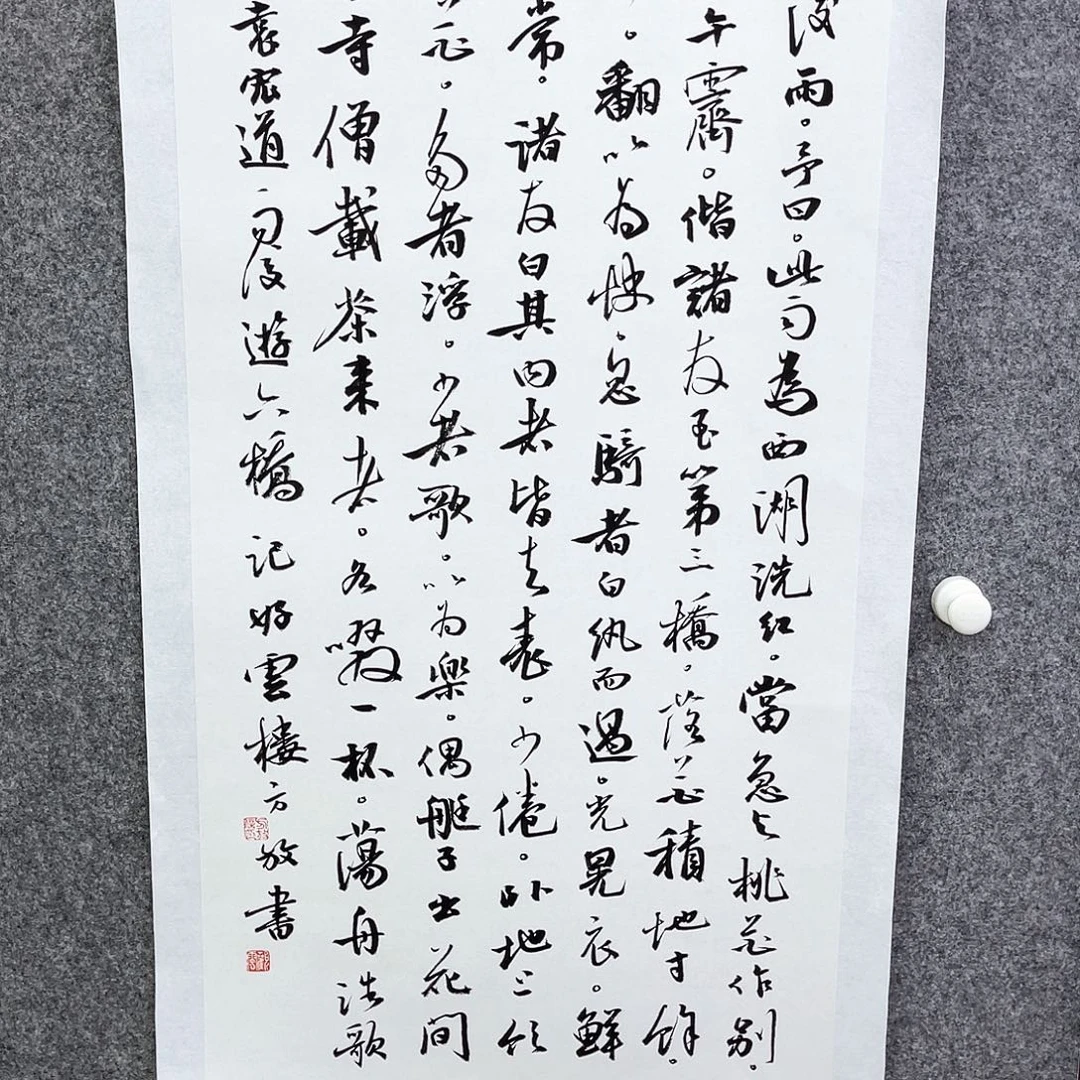 後雨。予曰。此雨為西湖洗紅。當急与桃花作别。
午霽。偕諸友至第三橋。落花積地寸餘。
。翻以為快、忽騎者白紈而過。光晃衣。鮮
常。諸友白其内者皆去表。少倦。卧地上飲
花。多者浮。少者歌。以為樂。偶艇子出花間
寺僧載茶来者。各啜一杯。蕩舟浩歌
袁宏道雨後遊六橋記好雲樓方放書